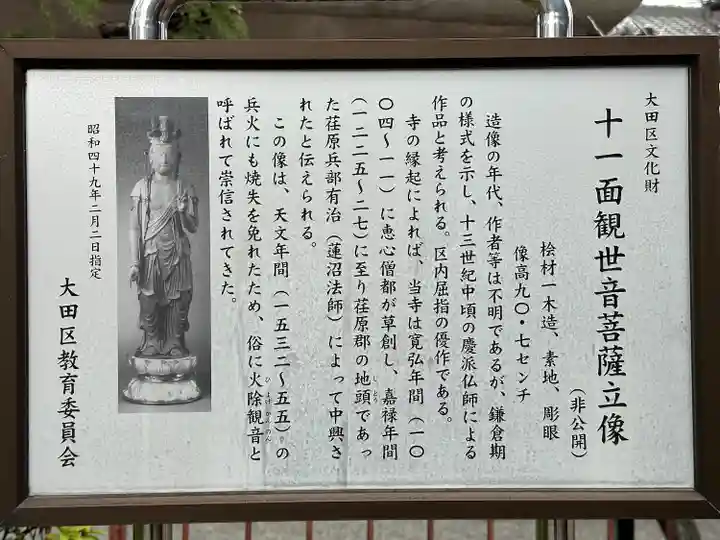 大田区文化財
十一面観世音菩薩立像
（非公開）
桧材一木造、素地、彫眼
像高九〇・七センチ
造像の年代、作者等は不明であるが、鎌倉期
の様式を示し、十三世紀中頃の慶派仏師による
作品と考えられる。区内屈指の優作である。
寺の縁起によれば、当寺は寛弘年間（一〇
〇四〜一一）に恵心僧都が草創し、嘉禄年間
（一二二五〜二七）に至り荏原郡の地頭であっ
た荏原兵部有治（蓮沼法師）によって中興さ
れたと伝えられる。
この像は、天文年間（一五三二〜五五）の
兵火にも焼失を免れたため、俗に火除観音と
呼ばれて崇信されてきた。
昭和四十九年二月二日指定
大田区教育委員会